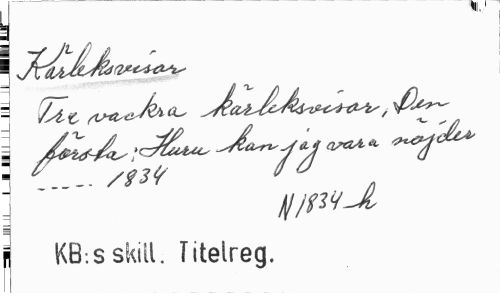 Kärleksvisor
Tre vackra kärleksvisor, Den
första: Huru kan jag vara nöjder
----- 1834
N 1834 h
KB:s skill. Titelreg.